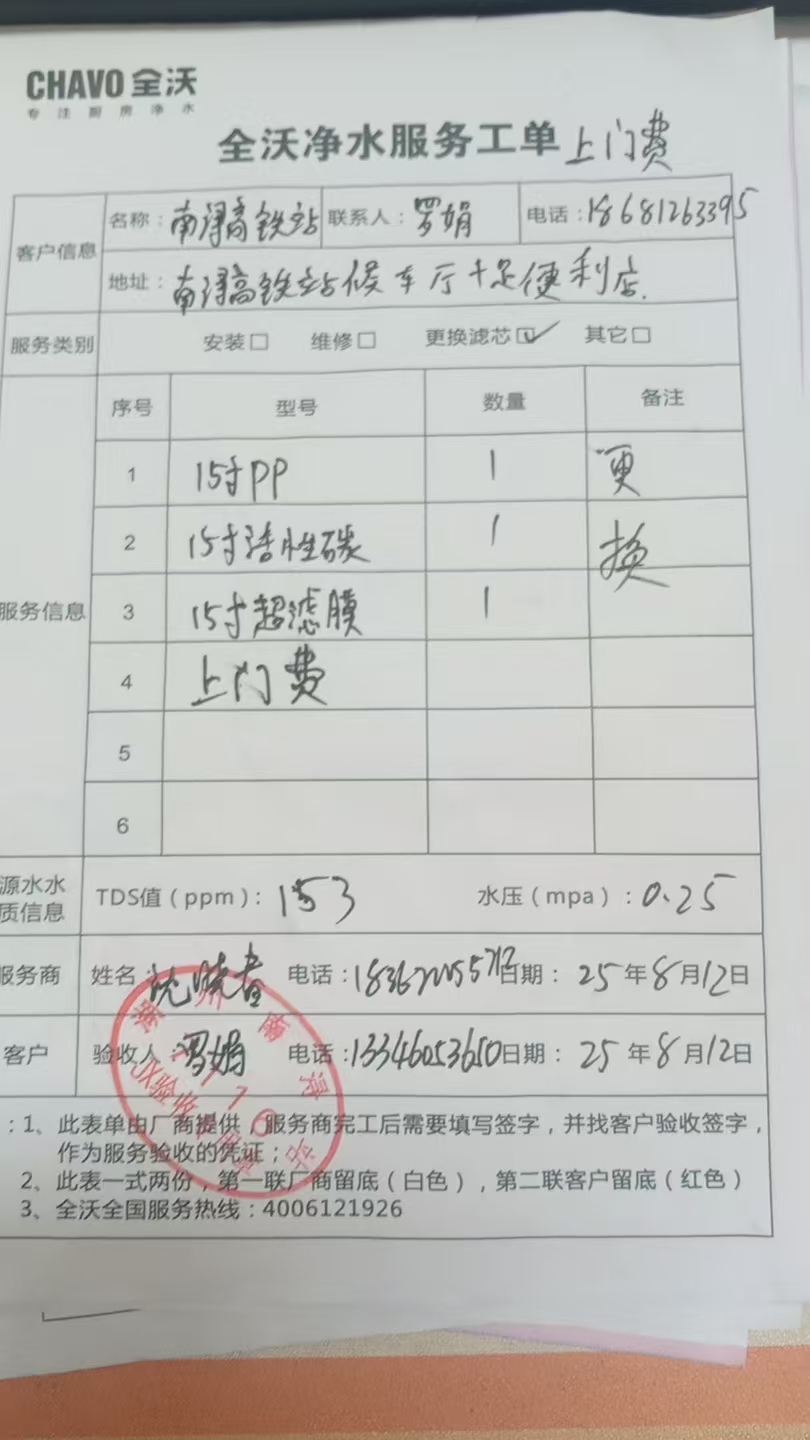 CHAVO 全沃
专注厨房净水
全沃净水服务工单 上门费
客户信息 名称：南浔高铁站 联系人：罗娟 电话：18681263395
地址：南浔高铁站候车厅十足便利店.
服务类别 安装□ 维修□ 更换滤芯☑ 其它□
服务信息
序号 型号 数量 备注
1 15寸PP 1 更
2 15寸活性碳 1 换
3 15寸超滤膜 1
4 上门费
5
6
源水水质信息 TDS值（ppm）：153 水压（mpa）：0.25
服务商 姓名：沈晓春 电话： 日期：25年8月12日
客户 验收人：罗娟 电话：13346053650 日期：25年8月12日
：1、此表单由厂商提供，服务商完工后需要填写签字，并找客户验收签字，
作为服务验收的凭证；
2、此表一式两份，第一联厂商留底（白色），第二联客户留底（红色）
3、全沃全国服务热线：4006121926